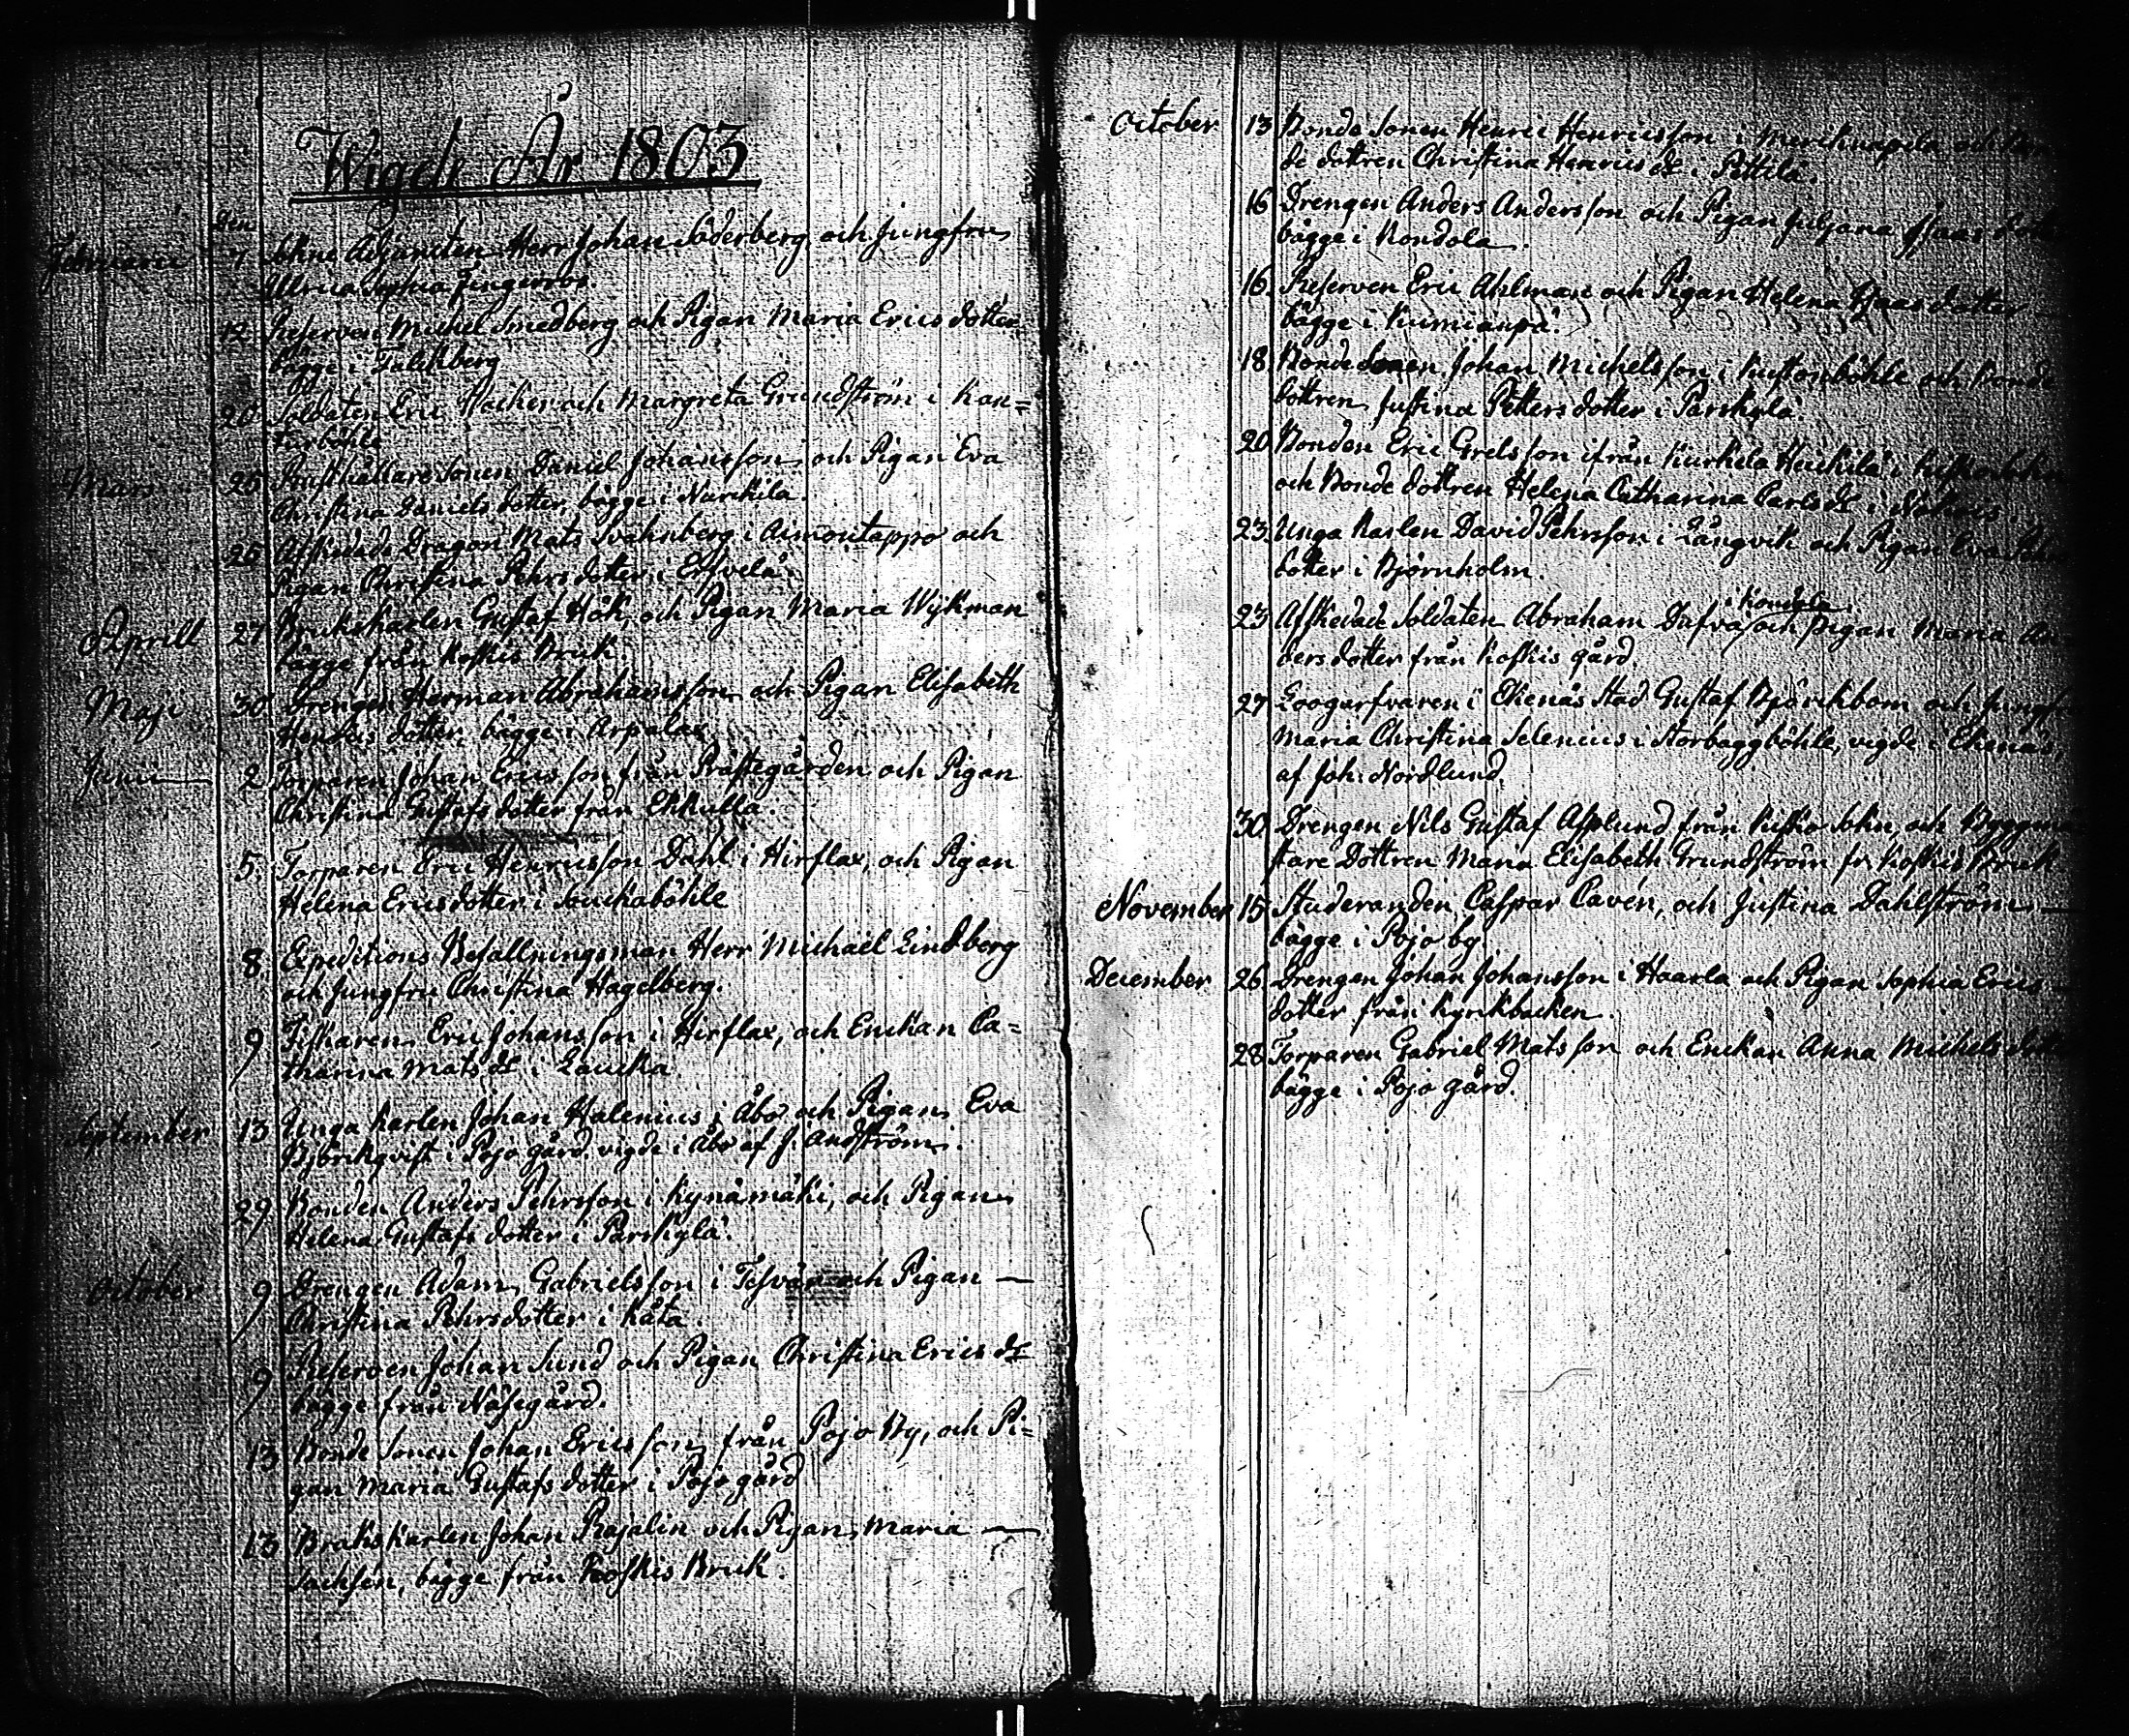 Wigde År 1803
den
Februarii 7 Sohne Adjuncten Herr Johan Söderberg och Jungfru
Ulrica Sophia Fingerroos.
12. Reserven Michel Smedberg och Pigan Maria Erics dotter
bägge i Falckberg
20 Soldaten Eric Wacker och Margreta Grundström i Kan=
turböhle
Mars 25 Rusthållare Sonen Daniel Johansson och Pigan Eva
Christina Daniels dotter, bägge i Narckila.
26 Afskedade Dragon Mats Svahnberg i Aimontappo och
Pigan Christina Pehrs dotter i Ersvelä.
Aprill 27 Brukskarlen Gustaf Hök, och Pigan Maria Wykman
bägge från Koskis Bruk
Maji 30 Drengen Herman Abrahamsson och Pigan Elisabeth
Henrics dotter, bägge i Arpalax
Junii 2 Torparen Johan Erics son från Prästegården och Pigan
Christina Gustafs dotter från Ekkulla.
5. Torparen Eric Henricsson Dahl i Hirslax, och Pigan
Helena Ericsdotter i Sauckaböhle
8. Expeditions Befallningsman Herr Michaël Lindberg
och Jungfru Christina Hagelberg.
9 Fiskaren Eric Johansson i Hirslax, och Enckan Ca=
tharina Mats dr i Laucka
September 13 Unga Karlen Johan Halenius i Åbo och Pigan Eva
Björckqvist i Pojo gård vigde i Åbo af J. Andström.
29 Bonden Anders Pehrsson i Kynämäki, och Pigan
Helena Gustafs dotter i Pärskylä.
October 9 Drengen Adam Gabrielsson i Tesvär och Pigan —
Christina Pehrsdotter i Kåta.
9 Reserven Johan Sund och Pigan Christina Erics dr
bägge från Näsegård.
13 Bonde Sonen Johan Erics son från Pojo By, och Pi=
gan Maria Gustafs dotter i Pojo gård
13 Brukskarlen Johan Rajalin och Pigan Maria —
Sachsén, bägge från Koskis Bruk.
October 13 Bonde Sonen Henric Henricsson i Mericknapila och Bon
de dottren Christina Henrics dr i Pettilä.
16 Drengen Anders Andersson och Pigan Juljana Isaacs dotter
bägge i Kondola.
16. Reserven Eric Ahlman och Pigan Helena Isaacs dotter —
bägge i Kumianpä.
18. Bonde Sonen Johan Michelsson i Kustonböhle och Bonde
dottren Justina Petters dotter i Pärskylä.
20 Bonden Eric Grelsson ifrån Kurkila Heickilä i Kisko Sokn
och Bonde dottren Helena Catharina Carls dr i Nokois
23. Unga Karlen David Pehrsson i Långvik och Pigan Eva
dotter i Björnholm.
i Kondola
23 Afskedade Soldaten Abraham Dufva och Pigan Maria An
dersdotter från Koskis gård.
27 Googarfvaren i Ekenäs Stad Gustaf Björckbom och Jungfru
Maria Christina Selenius i Storbaggböhle, vigde i Ekenäs,
af Joh: Nordlund.
30 Drengen Nils Gustaf Asplund från Kisko Sokn, och Byggmä
stare Dottren Maria Elisabeth Grundström fr. Koskis Bruk
November 15 Studeranden Caspar Cavén, och Justina Dahlström —
bägge i Pojo by.
December 26 Drengen Johan Johansson i Haarla och Pigan Sophia Erics
dotter från Kyrckbacken.
28 Torparen Gabriel Mats son och Enckan Anna Michels dotter
bägge i Pojo gård.